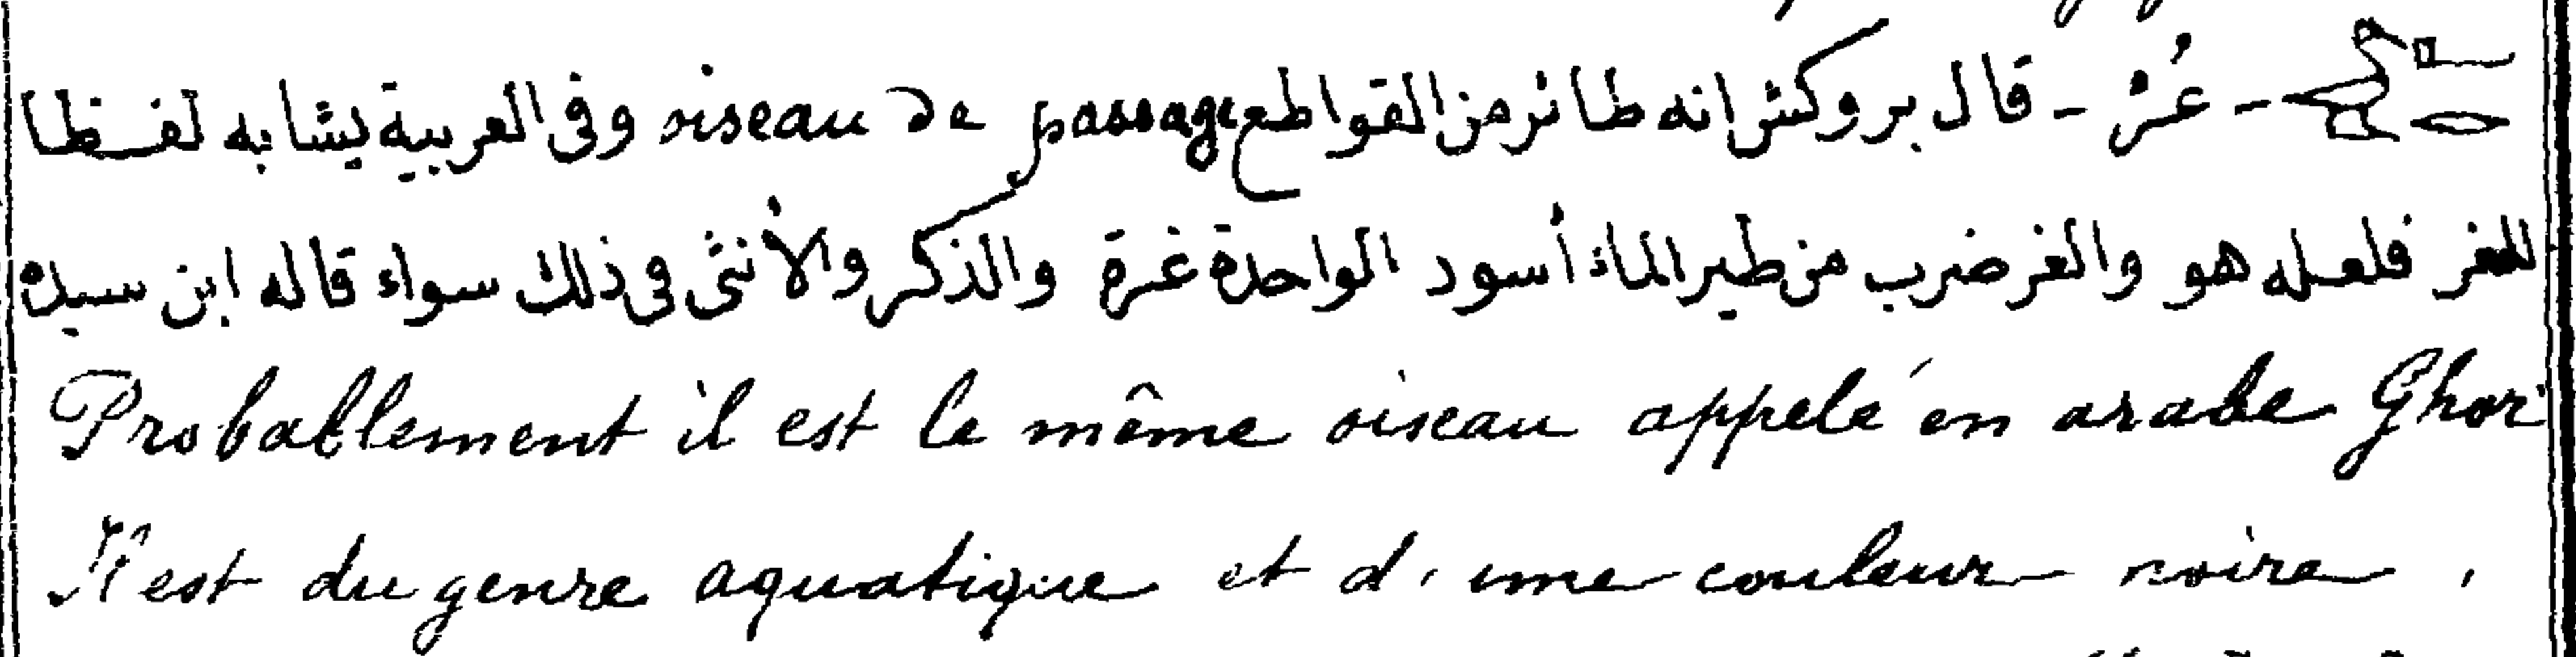 - عُرْ - قال بروكش انه طائر من القواطع oiseau de passage وفى العربية يشابه لفظا
للغر فلعله هو والغر ضرب من طير الماء أسود الواحدة غرة والذكر والأنثى فى ذلك سواء قاله ابن سيده
Probablement il est le même oiseau appelé en arabe Ghor
Il est du genre aquatique et d'une couleur noire.